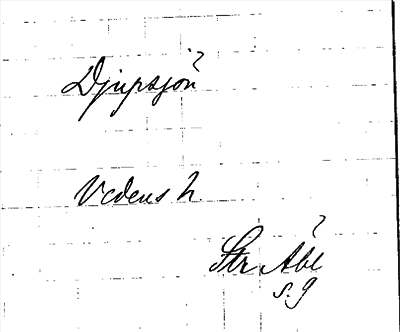 ?
Djupsjön
Vedens h.
?
Str Åbl
s. 9